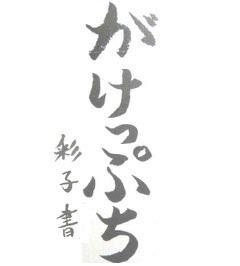 がけっぷち
彩子書